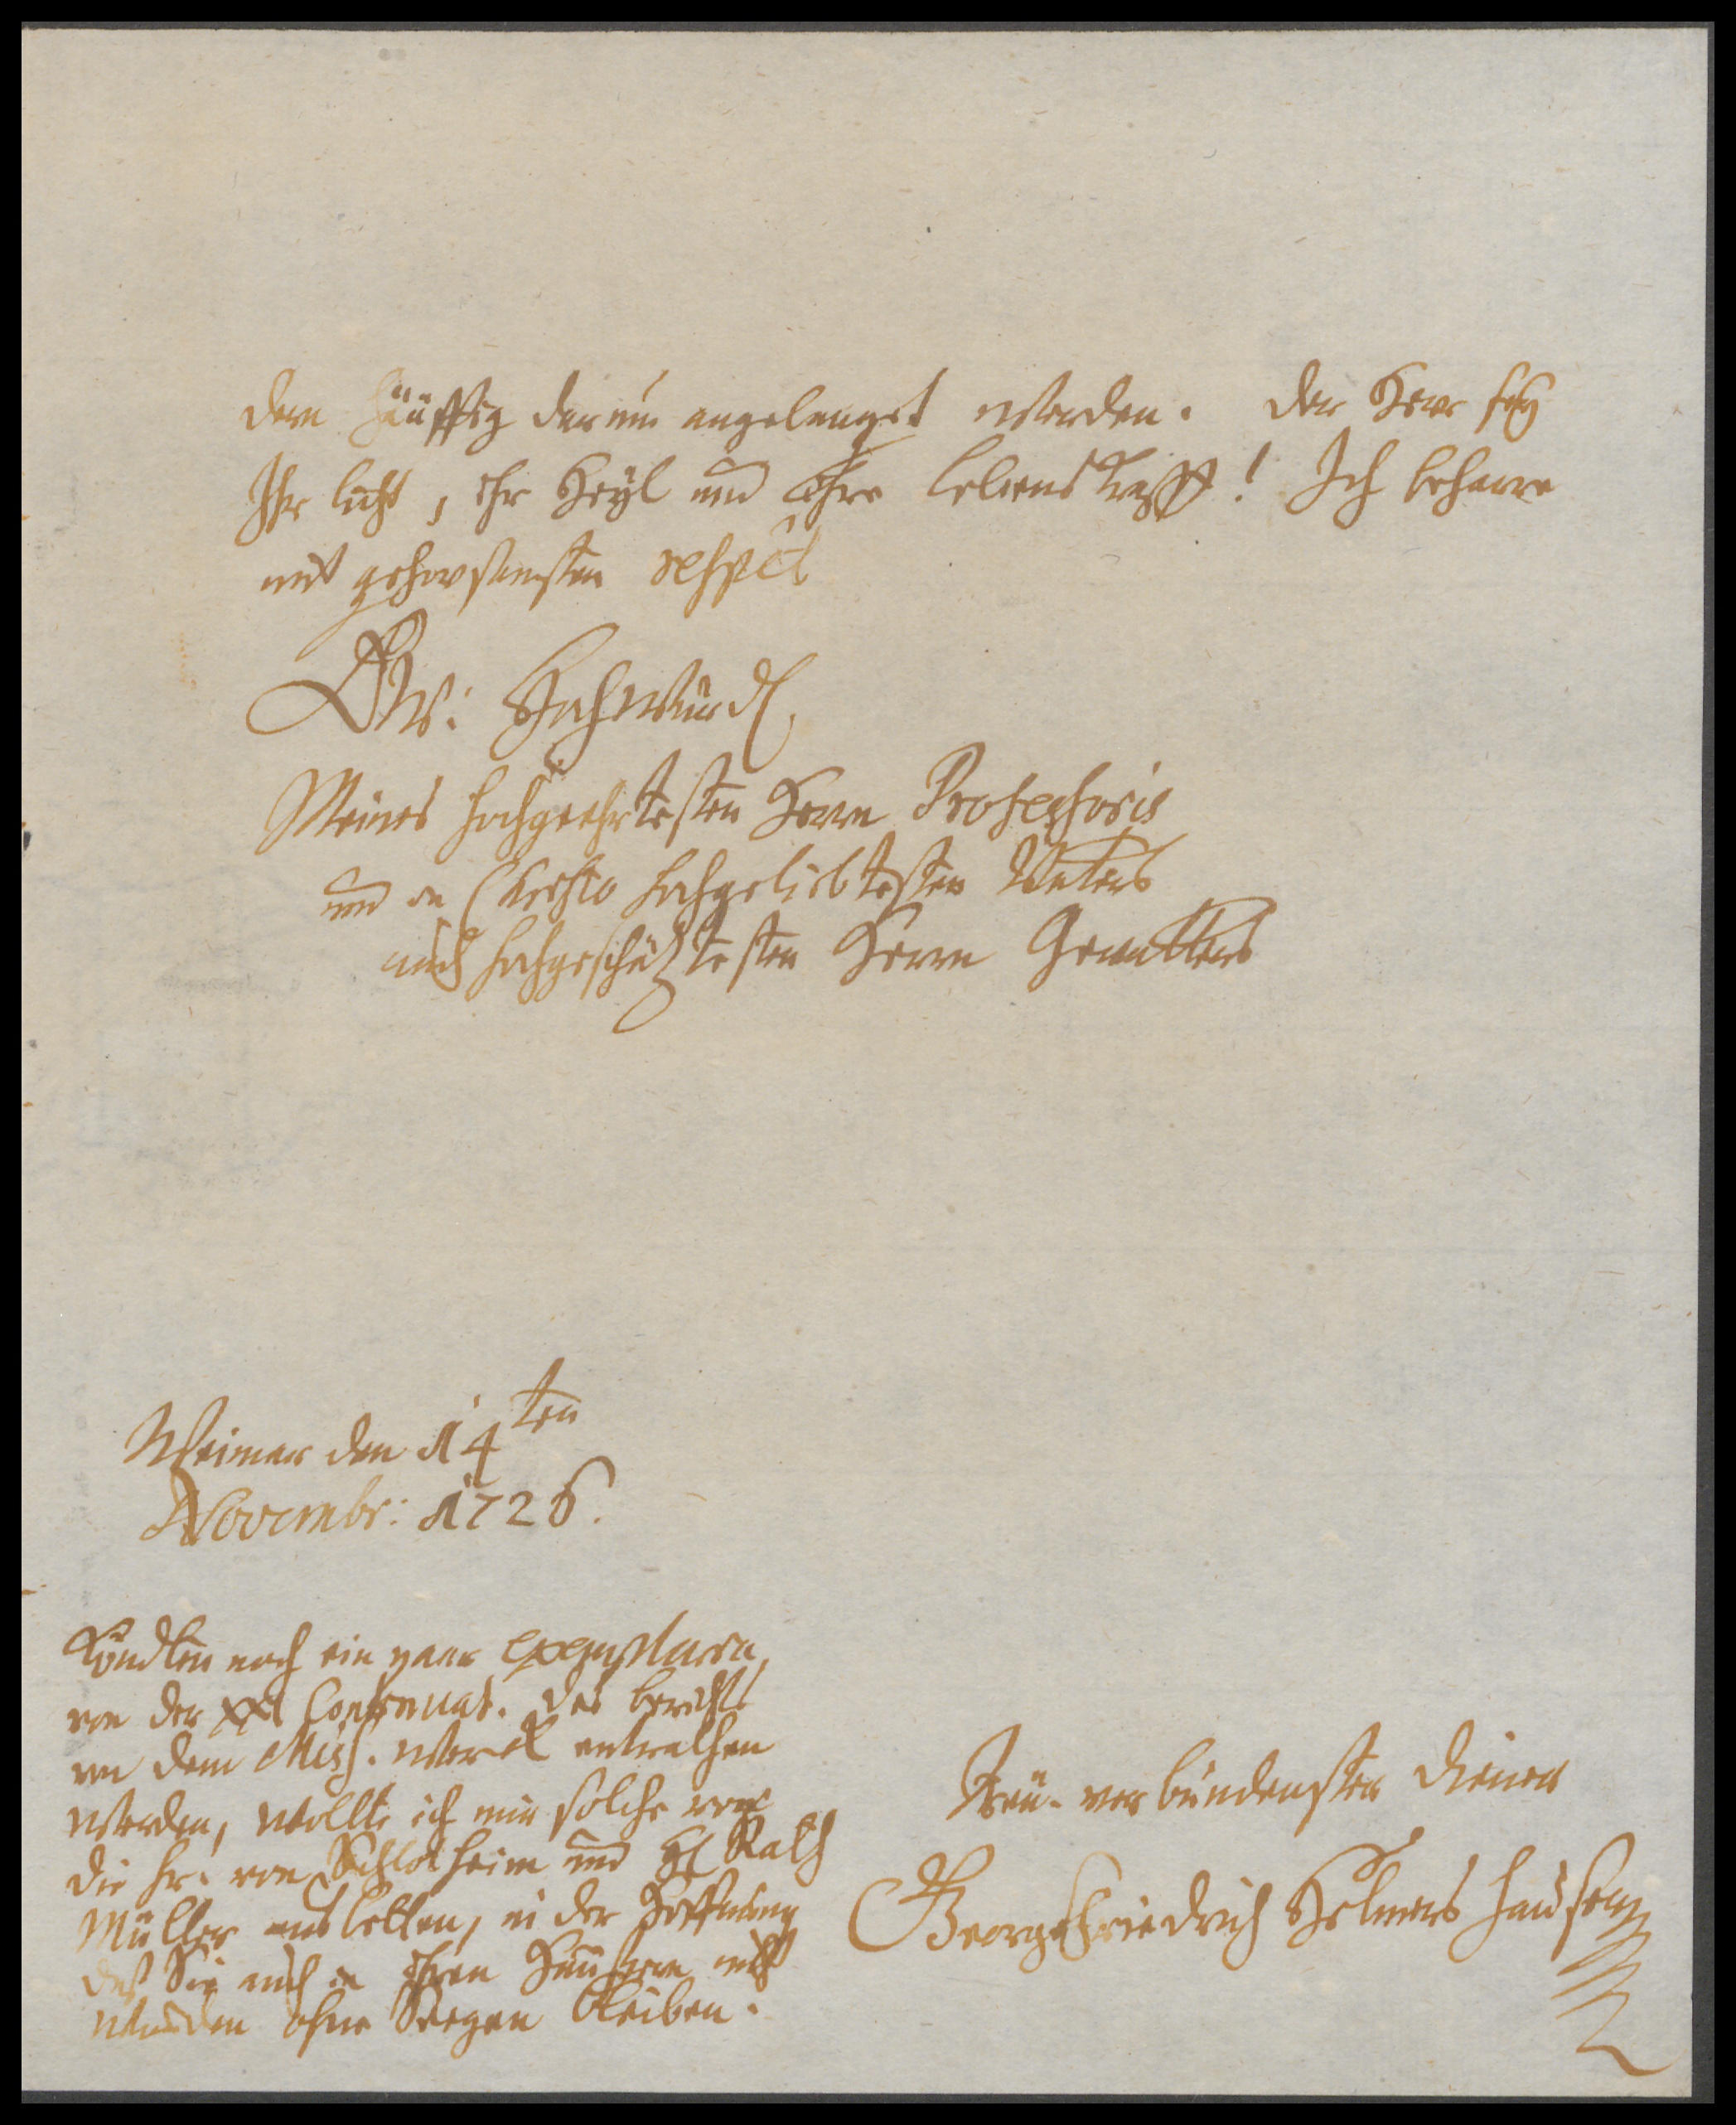 dern häuffig darum angelanget worden. Der Herr sey
Ihr licht, ihr Heyl und Ihre lebens krafft! Ich beharre
mit gehorsamsten respect
Ew: Hochwürd.
Meines hochgeehrtesten Herrn Professoris
und in Christo hochgeliebtesten Vaters
auch hochgeschätztesten Herrn Gevatters
Weimar den 14ten
Novembr: 1726.
Könten noch ein paar exemplaria
von der XXI Continuat. des berichts
von dem Miss. werck entrathen
werden, wollte ich mir solche vor
die Fr. von Schlotheim und H. Rath
Müller ausbitten, in der Hoffnung
daß Sie auch in ihren Häusern nicht
würden ohne Seegen bleiben.
Treu-verbundenster Diener
George Friedrich Helmershausen